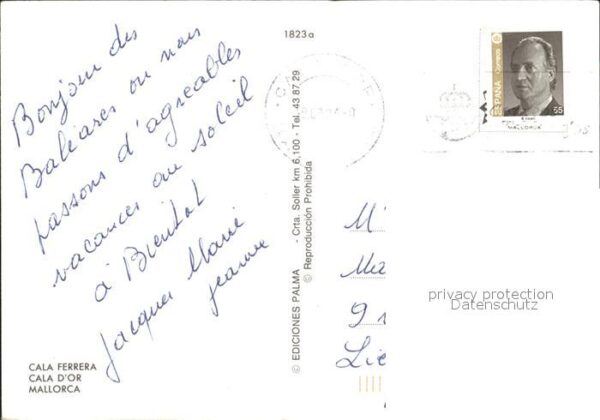 Bonjour des
Baléares ou nous
passons d'agreables
vacances au soleil
à Bientot
Jacques Marie
jeanne
CALA FERRERA
CALA D'OR
MALLORCA
1823a
© EDICIONES PALMA - Crta. Soller km 6,100 - Tel. 43 87 29
© Reproducción Prohibida
ESPAÑA
Correos
55
MALLORCA
privacy protection
Datenschutz
M
Ma
9
Lie